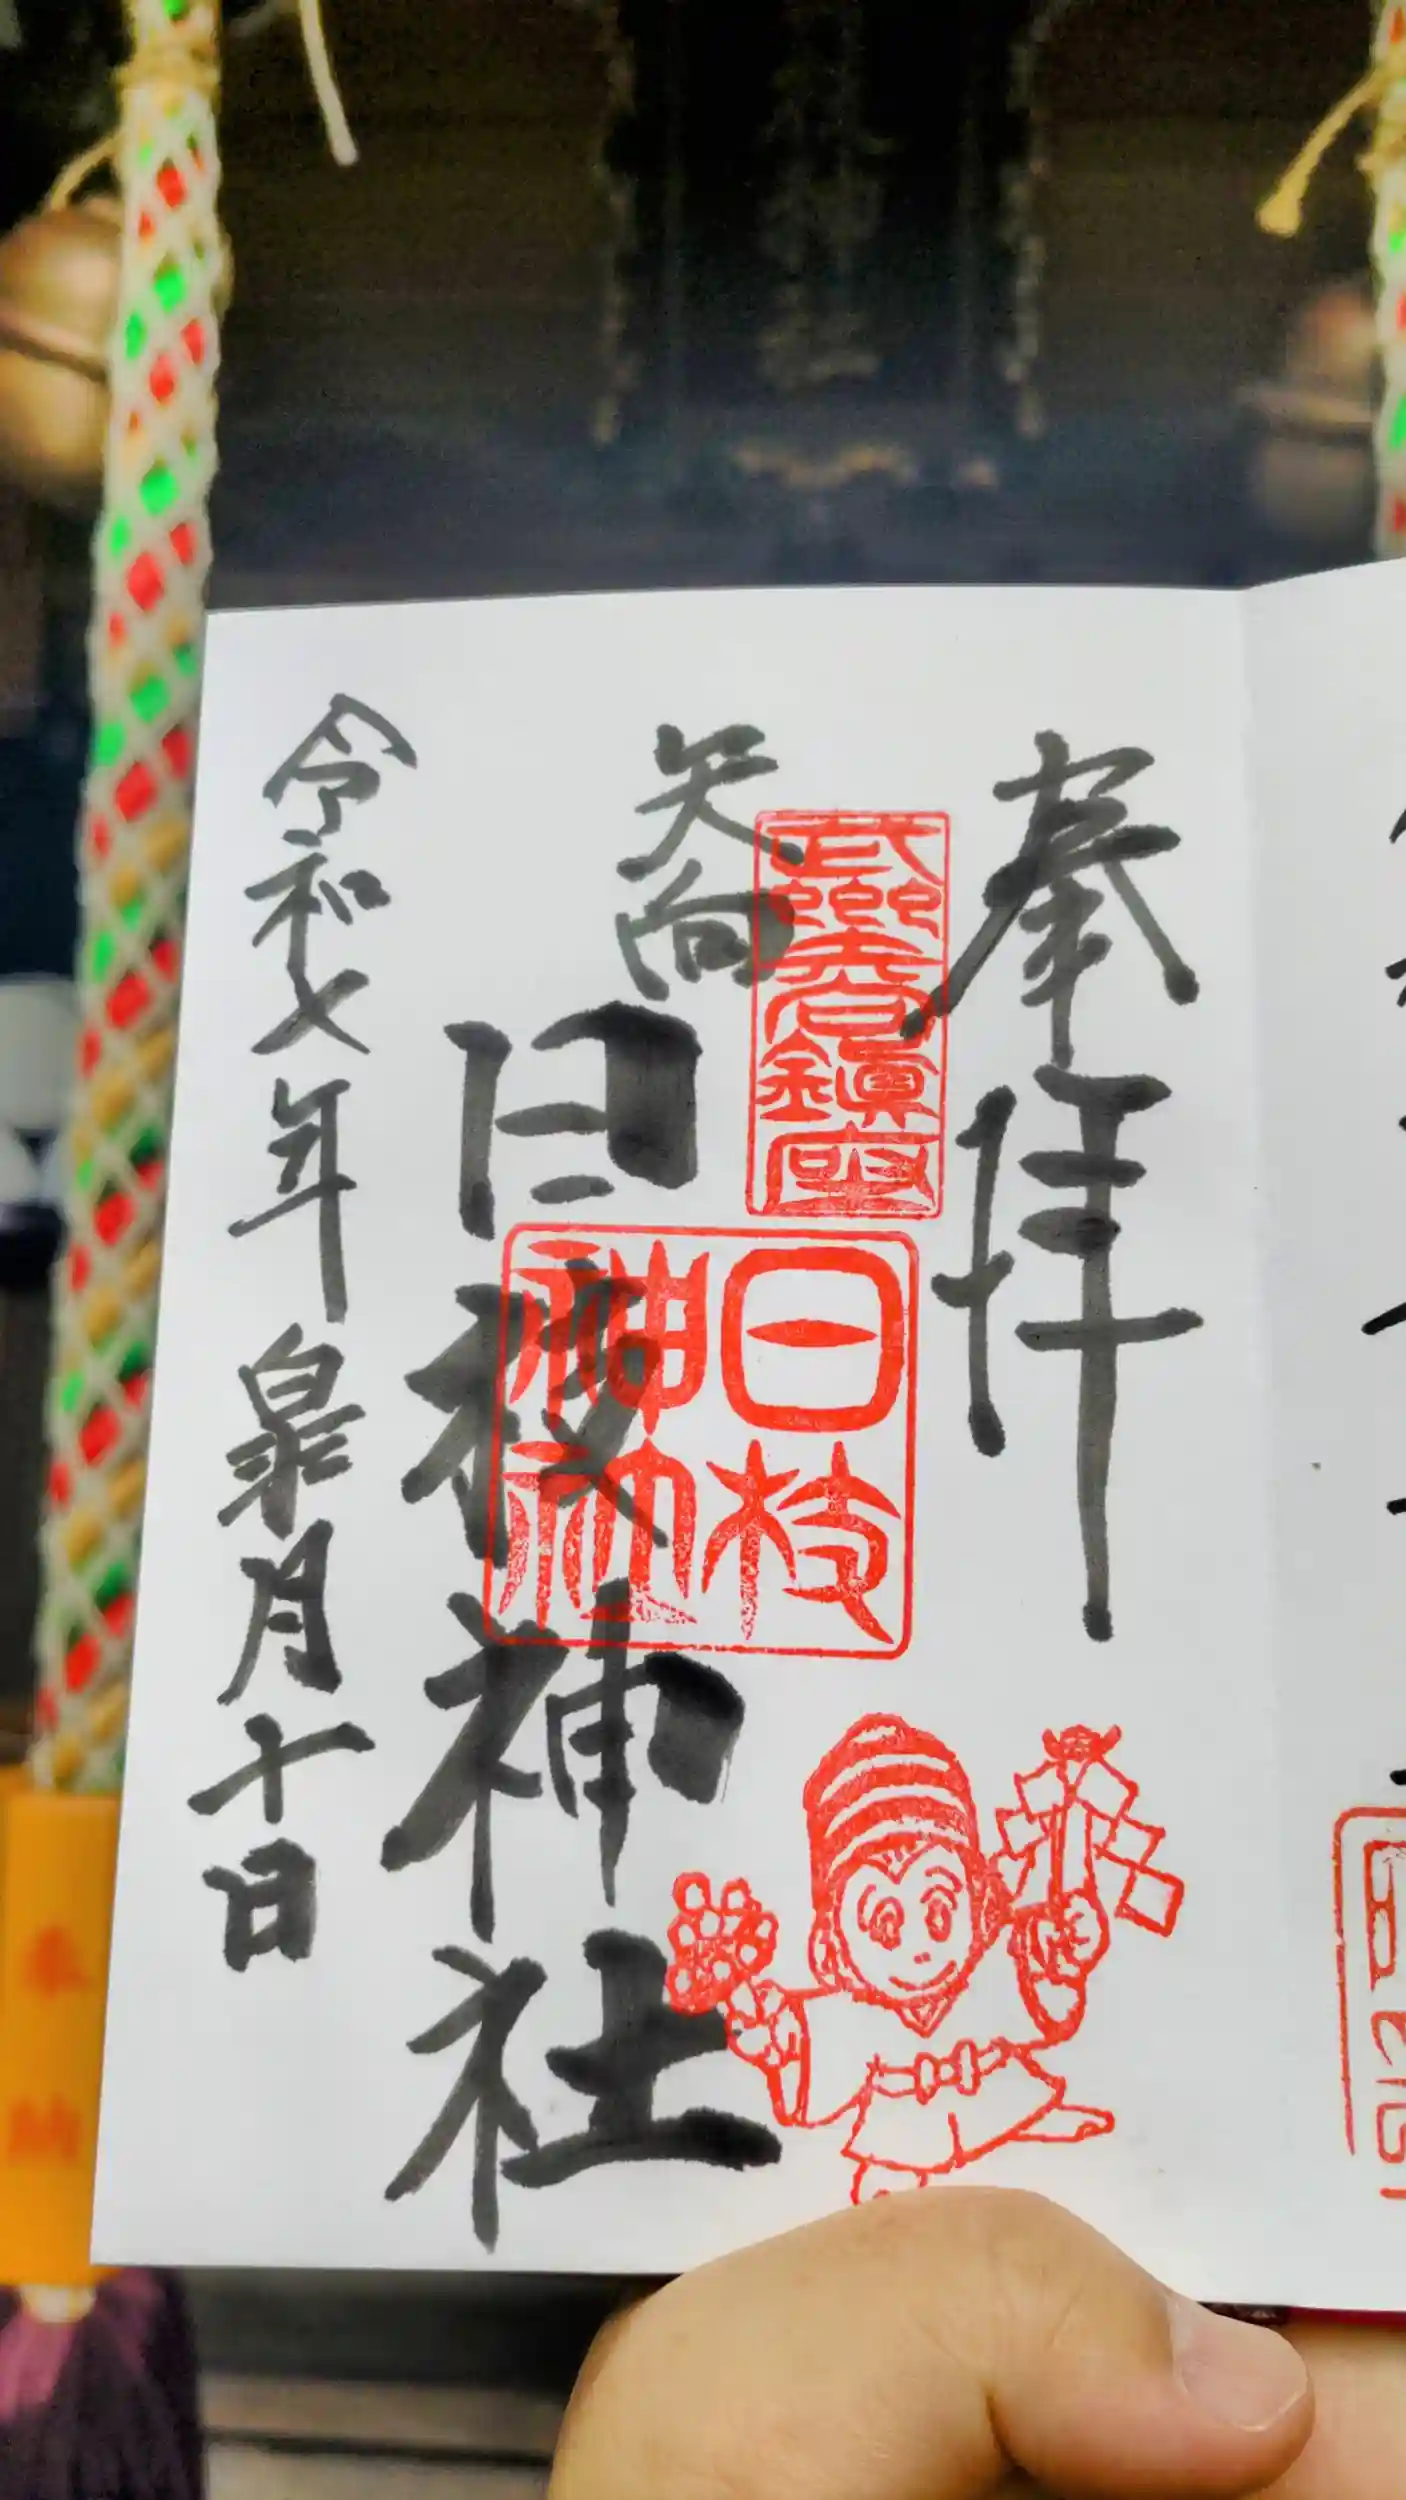 奉拝
矢向
日枝神社
令和七年皐月十日
鎮座
日枝
神社